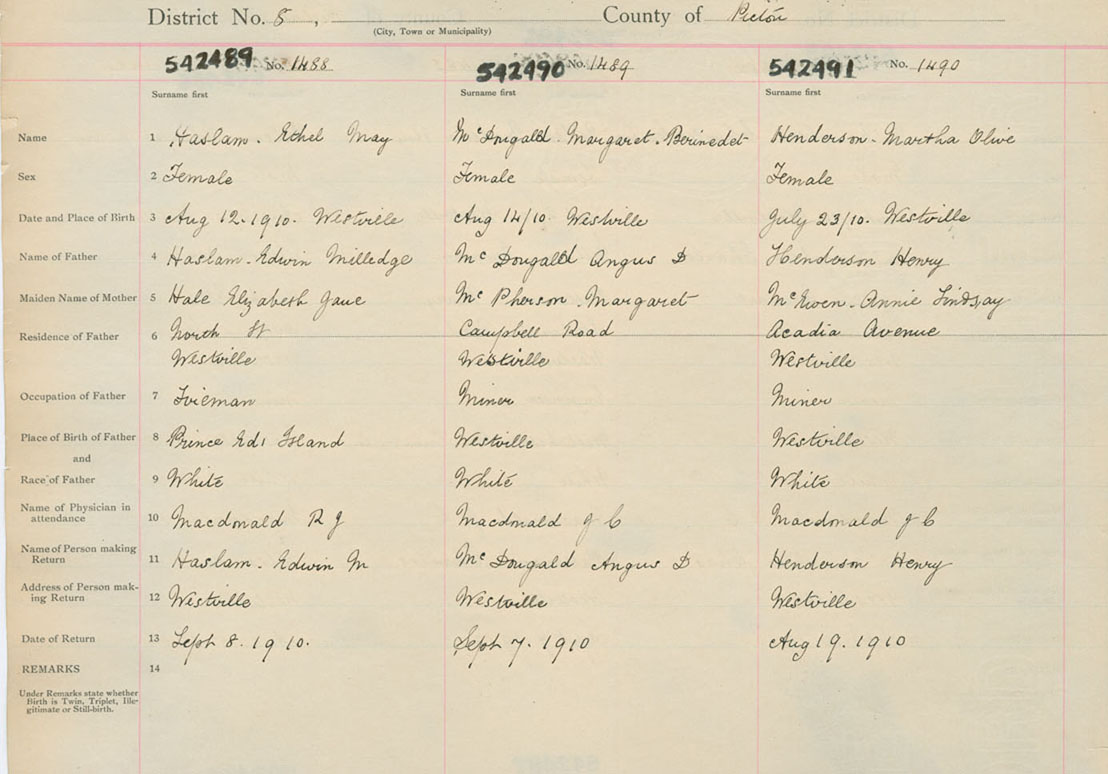 District No. 8, County of Pictou
(City, Town or Municipality)
542489 No. 1488 542490 No. 1489 542491 No. 1490
Surname first Surname first Surname first
Name 1 Haslam. Ethel May McDougald. Margaret. Berinedet Henderson - Martha Olive
Sex 2 Female Female Female
Date and Place of Birth 3 Aug 12. 1910. Westville Aug 14/10 Westville July 23/10. Westville
Name of Father 4 Haslam. Edwin Milledge Mc Dougald Angus D Henderson Henry
Maiden Name of Mother 5 Hale Elizabeth Jane Mc Pherson. Margaret McEwen. Annie Lindsay
Residence of Father 6 North St Campbell Road Acadia Avenue
Westville Westville Westville
Occupation of Father 7 Fireman Miner Miner
Place of Birth of Father 8 Prince Ed. Island Westville Westville
and
Race of Father 9 White White White
Name of Physician in
attendance 10 Macdonald R J Macdonald J C Macdonald J C
Name of Person making
Return 11 Haslam. Edwin M Mc Dougald Angus D Henderson Henry
Address of Person mak-
ing Return 12 Westville Westville Westville
Date of Return 13 Sept 8. 1910. Sept 7. 1910 Aug 19. 1910
REMARKS 14
Under Remarks state whether
Birth is Twin, Triplet, Ille-
gitimate or Still-birth.